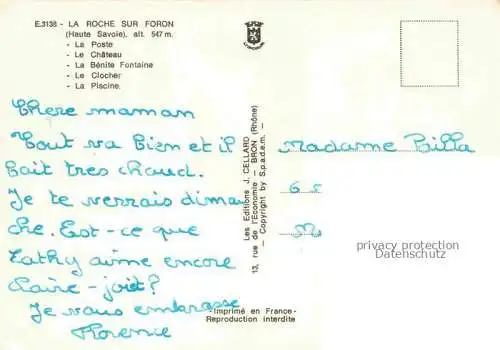 E.3138 - LA ROCHE SUR FORON
(Haute Savoie), alt. 547 m.
- La Poste
- Le Château
- La Bénite Fontaine
- Le Clocher
- La Piscine.
Chère maman
Tout va bien et il
fait très chaud.
Je te verrais diman
che. Est-ce que
Cathy aime encore
Claire-joie?
Je vous embrasse
Florence
Les Editions J. CELLARD
13, rue de l'Economie - BRON (Rhône)
- Copyright by S.p.a.d.e.m. -
Madame
privacy protection
Datenschutz
-Imprimé en France-
Reproduction interdite